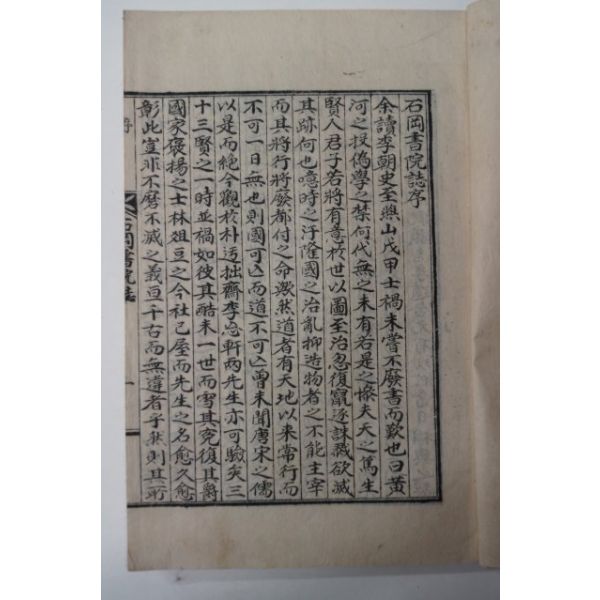 石岡書院誌序
余讀李朝史至燕山戊甲士禍未嘗不廢書而歎也曰黃
河之投偽學之禁何代無之未有若是之慘夫天之篤生
賢人君子若將有意於世以圖至治忽復竄逐誅戮欲滅
其跡何也噫時之汙隆國之治亂抑造物者之不能主宰
而其將行將廢都付之命歟然道者有天地以來常行而
不可一日無也則國可亡而道不可亡曾未聞唐宋之儒
以是而絕今觀於朴迃拙齋李忘軒兩先生亦可驗矣三
十三賢之一時並禍如彼其酷未一世而雪其寃復其爵
國家褒揚之士林俎豆之今社已屋而先生之名愈久愈
彰此豈非不磨不滅之義亘千古而無違者乎然則其所
石岡書院誌
序
一